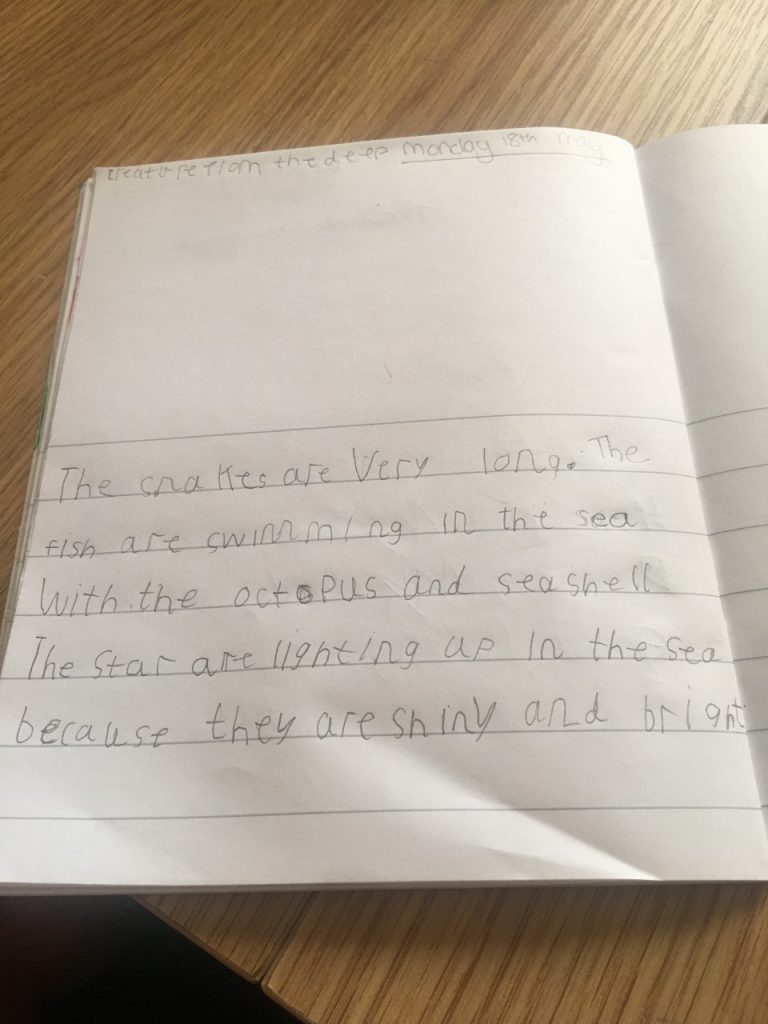 creature from the deep monday 18th may
The snakes are Very long. The
fish are swimming in the sea
With the octopus and seashell
The Star are lighting up in the sea
because they are shiny and bright